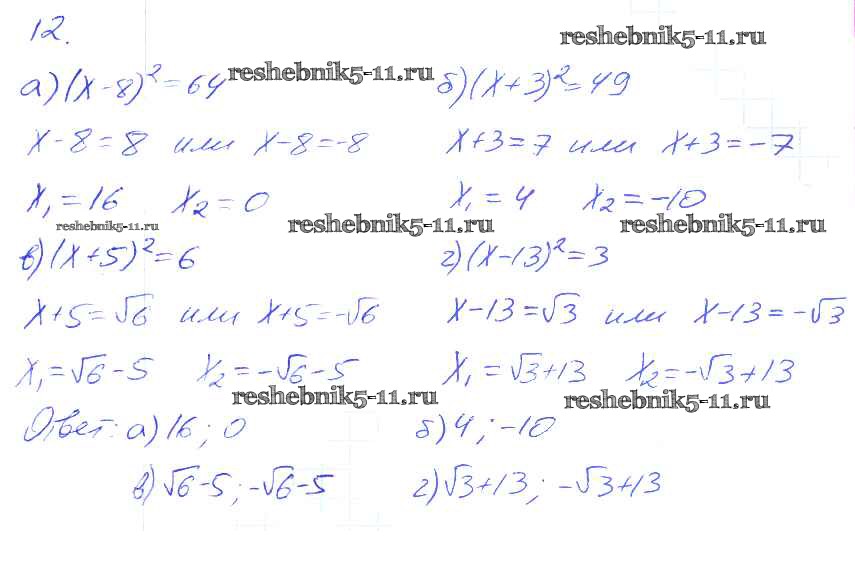 12.
reshebnik5-11.ru
а) (x-8)² = 64 reshebnik5-11.ru б) (x+3)² = 49
x-8=8 или x-8=-8 x+3=7 или x+3=-7
x₁=16 x₂=0 x₁=4 x₂=-10
reshebnik5-11.ru reshebnik5-11.ru reshebnik5-11.ru
в) (x+5)² = 6 г) (x-13)² = 3
x+5=√6 или x+5=-√6 x-13=√3 или x-13=-√3
x₁=√6-5 x₂=-√6-5 x₁=√3+13 x₂=-√3+13
reshebnik5-11.ru reshebnik5-11.ru
Ответ: а) 16; 0 б) 4; -10
в) √6-5; -√6-5 г) √3+13; -√3+13